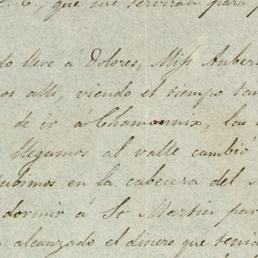 C., que me serviran para p
do llevé á Dolores, Miss Auber
os alli, viendo el tiempo tan
de ir a Chamonnix, las
llegamos al valle cambió
ubimos en la cabecera del s
dormir á St Martin par
alcanzado el dinero que tenia